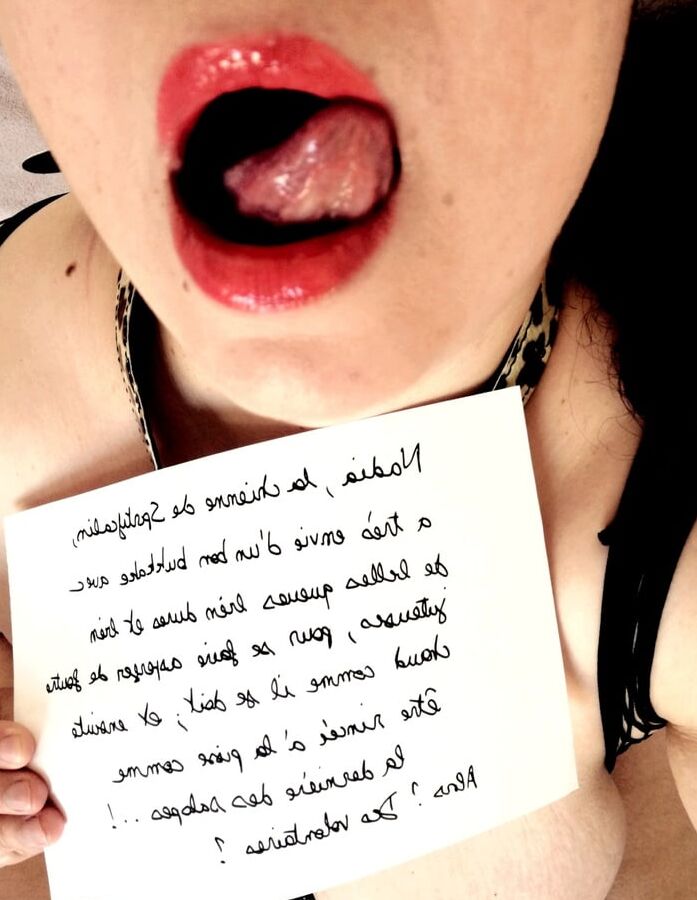 Nadia, la chienne de Spartyfalin,
a très envie d'un bon bukkake avec
de belles queues bien dures et bien
juteuses, pour se faire asperger de foutre
chaud comme il se doit ; et ensuite
être rincée à la pisse comme
la dernière des salopes ...!
Alors ? Des volontaires ?